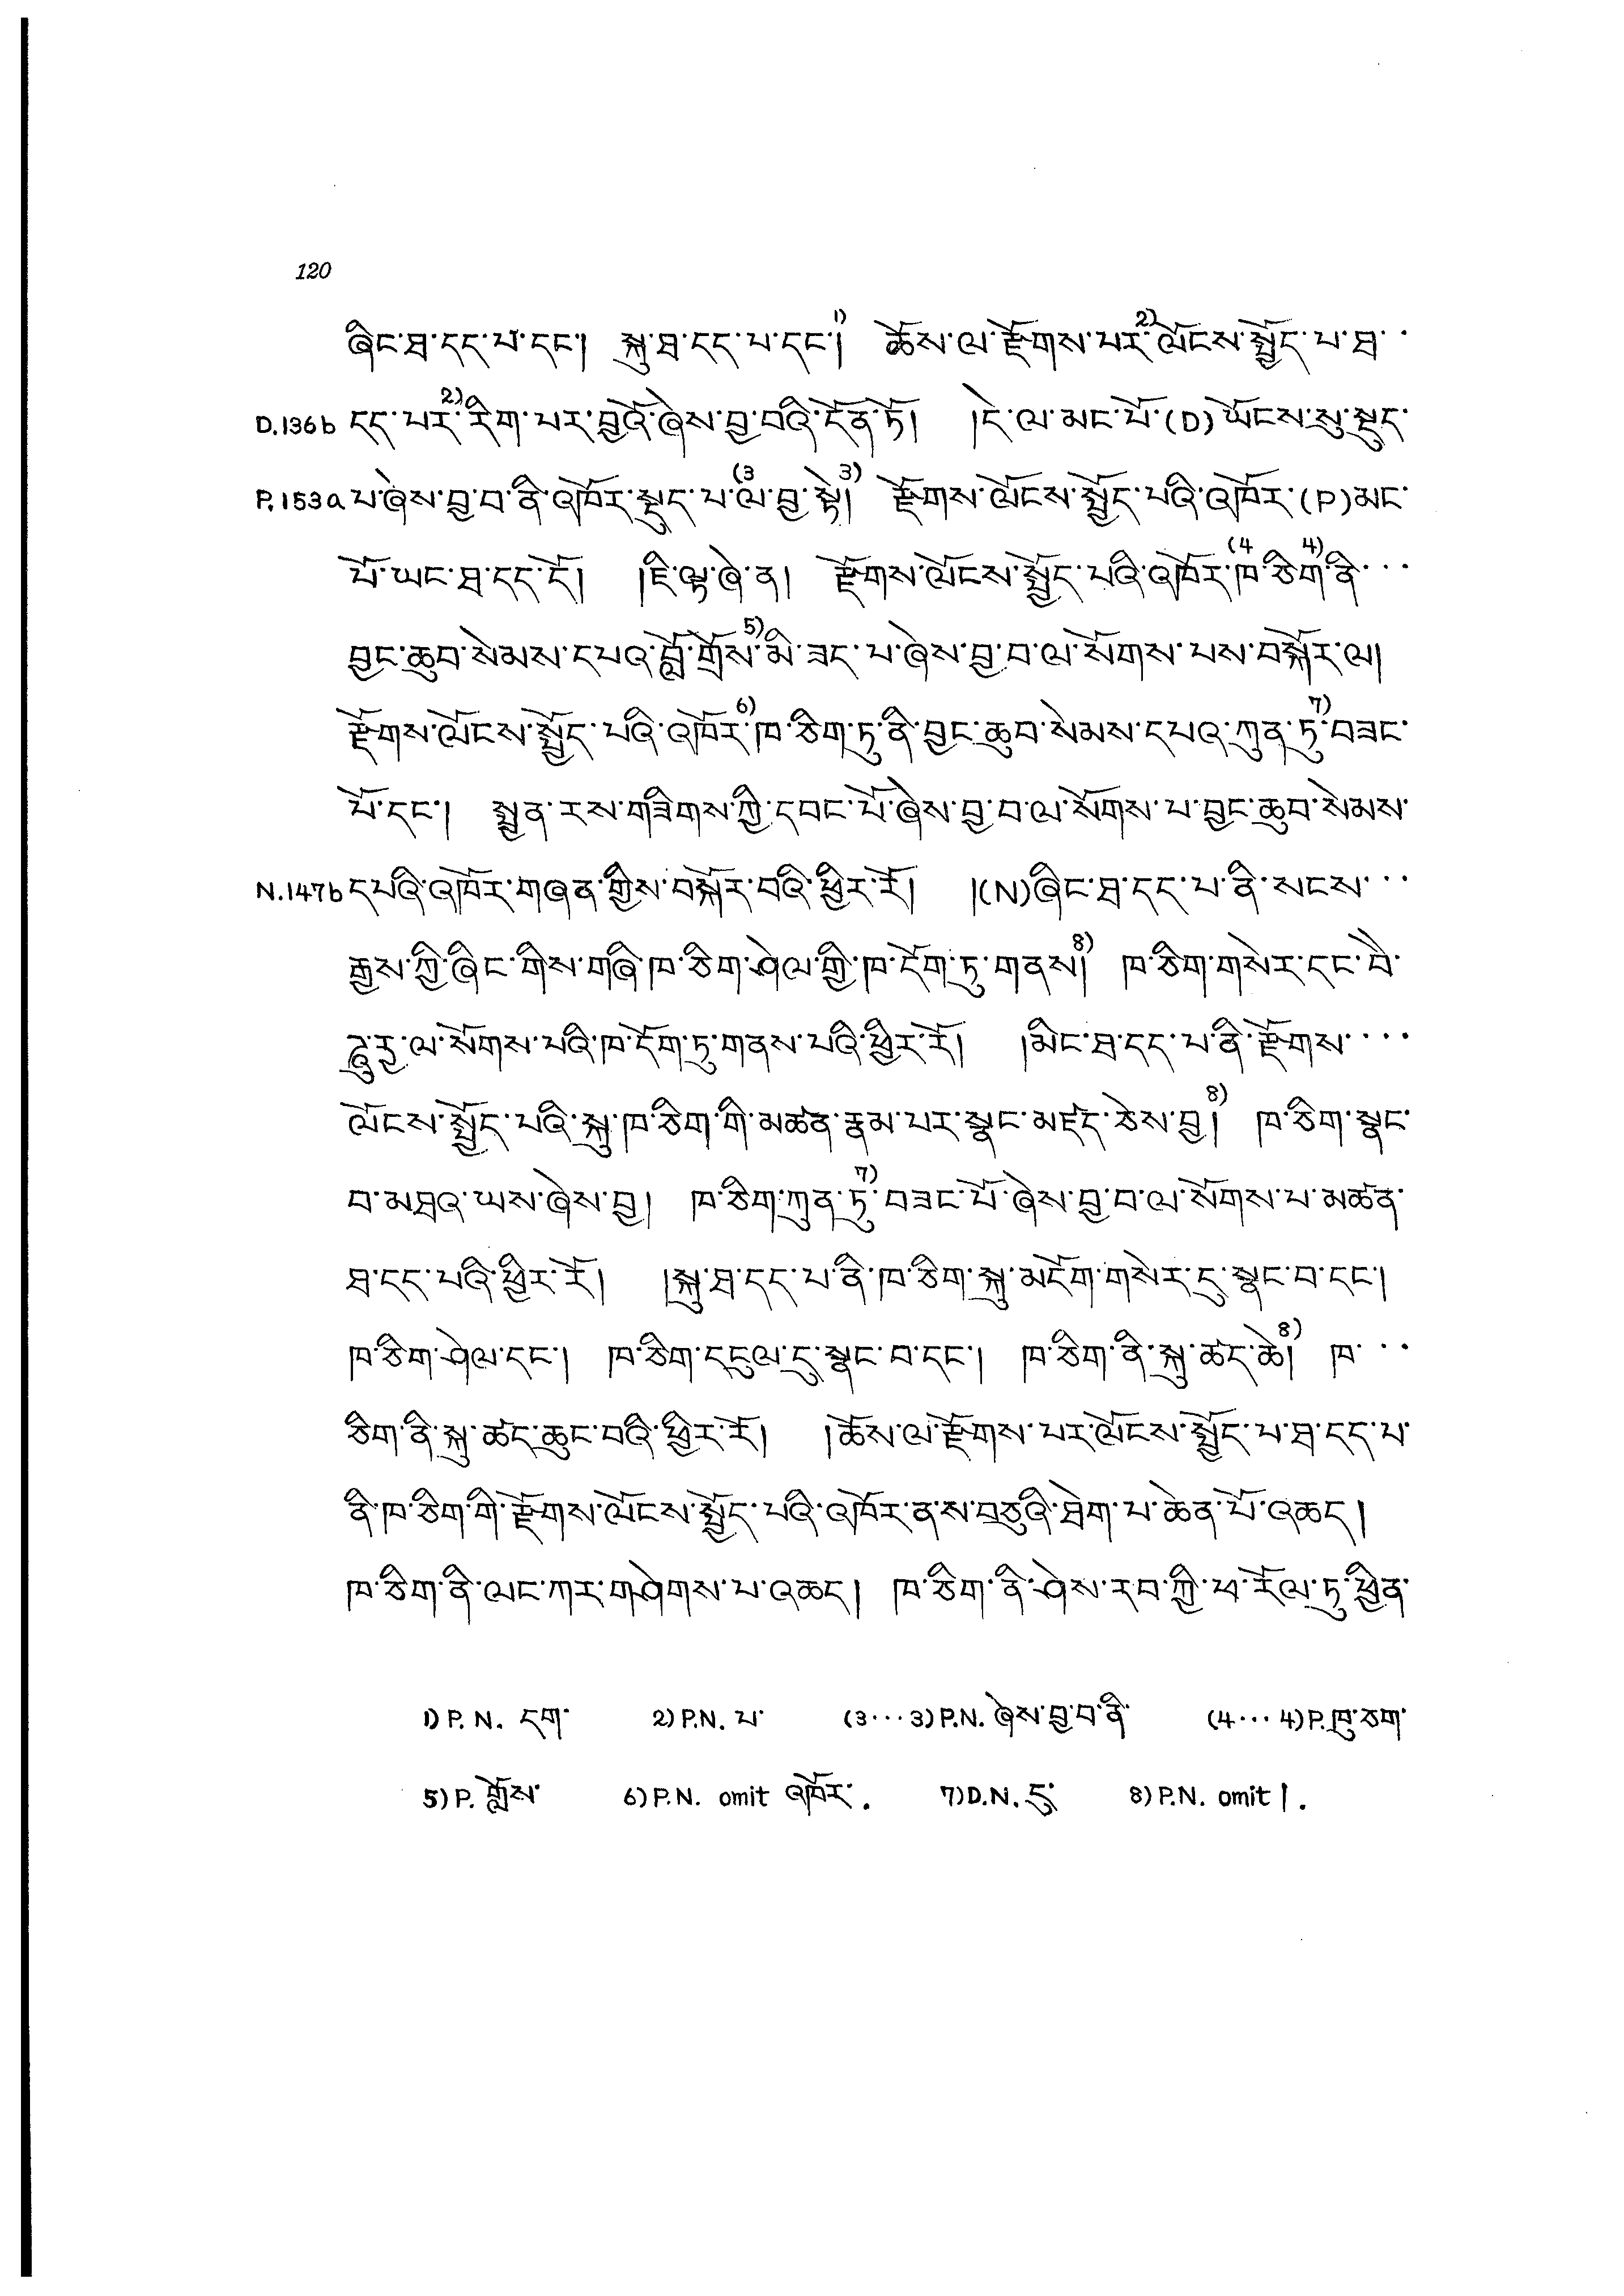 120
ཞིང་ཐ་དད་པ་དང་། སྐུ་ཐ་དད་པ་དང་1)། ཆོས་ལ་རྫོགས་པར་2)ལོངས་སྤྱོད་པ་ཐ་་
D.136b དད་པར་2)རིག་པར་བྱའོ་ཞེས་བྱ་བའི་དོན་ཏོ། །དེ་ལ་མང་པོ་(D)ཡོངས་སུ་སྡུད་
P.153a པ་ཞེས་བྱ་བ་ནི་འཁོར་སྡུད་པ་(3ལ་བྱ་སྟེ3)། རྫོགས་ལོངས་སྤྱོད་པའི་འཁོར་(P)མང་
པོ་ཡང་ཐ་དད་དོ། །ཇི་ལྟ་ཞེ་ན། རྫོགས་ལོངས་སྤྱོད་པའི་འཁོར་(4ཁ་ཅིག་4)ནི་་་
བྱང་ཆུབ་སེམས་དཔའ་བློ་གྲོས་5)མི་ཟད་པ་ཞེས་བྱ་བ་ལ་སོགས་པས་བསྐོར་ལ།
རྫོགས་ལོངས་སྤྱོད་པའི་འཁོར་6)ཁ་ཅིག་ཏུ་ནི་བྱང་ཆུབ་སེམས་དཔའ་ཀུན་ཏུ་7)བཟང་
པོ་དང་། སྤྱན་རས་གཟིགས་ཀྱི་དབང་པོ་ཞེས་བྱ་བ་ལ་སོགས་པ་བྱང་ཆུབ་སེམས་
N.147b དཔའི་འཁོར་གཞན་གྱིས་བསྐོར་བའི་ཕྱིར་རོ། །(N)ཞིང་ཐ་དད་པ་ནི་སངས་་་
རྒྱས་ཀྱི་ཞིང་གིས་གཞི་ཁ་ཅིག་ཤེལ་གྱི་ཁ་དོག་ཏུ་གནས8)། ཁ་ཅིག་གསེར་དང་བེ་
ཌཱུརྱ་ལ་སོགས་པའི་ཁ་དོག་ཏུ་གནས་པའི་ཕྱིར་རོ། །མིང་ཐ་དད་པ་ནི་རྫོགས་་་་
ལོངས་སྤྱོད་པའི་སྐུ་ཁ་ཅིག་གི་མཚན་རྣམ་པར་སྣང་མཛད་ཅེས་བྱ8)། ཁ་ཅིག་སྣང་
བ་མཐའ་ཡས་ཞེས་བྱ། ཁ་ཅིག་ཀུན་ཏུ་7)བཟང་པོ་ཞེས་བྱ་བ་ལ་སོགས་པ་མཚན་
ཐ་དད་པའི་ཕྱིར་རོ། །སྐུ་ཐ་དད་པ་ནི་ཁ་ཅིག་སྐུ་མདོག་གསེར་དུ་སྣང་བ་དང་།
ཁ་ཅིག་ཤེལ་དང་། ཁ་ཅིག་དངུལ་དུ་སྣང་བ་དང་། ཁ་ཅིག་ནི་སྐུ་ཚད་ཆེ8)། ཁ་་་
ཅིག་ནི་སྐུ་ཚད་ཆུང་བའི་ཕྱིར་རོ། །ཆོས་ལ་རྫོགས་པར་ལོངས་སྤྱོད་པ་ཐ་དད་པ་
ནི་ཁ་ཅིག་གི་རྫོགས་ལོངས་སྤྱོད་པའི་འཁོར་ན་ས་བཅུའི་ཐེག་པ་ཆེན་པོ་འཆད།
ཁ་ཅིག་ནི་ལང་ཀར་གཤེགས་པ་འཆད། ཁ་ཅིག་ནི་ཤེས་རབ་ཀྱི་ཕ་རོལ་ཏུ་ཕྱིན་
1) P. N. དག་ 2) P.N. པ་ (3···3) P.N. ཞེས་བྱ་བ་ནི་ (4···4) P. ཁུ་ཅག་
5) P. གློས་ 6) P.N. omit འཁོར་. 7) D.N. དུ་ 8) P.N. omit །.